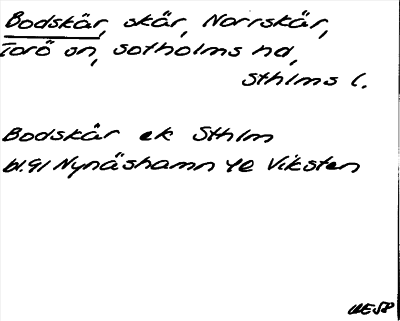 Bodskär, skär, Norrskär,
Torö sn, Sotholms hd,
Sthlms l.
Bodskär ek Sthlm
bl.91 Nynäshamn 4e Viksten